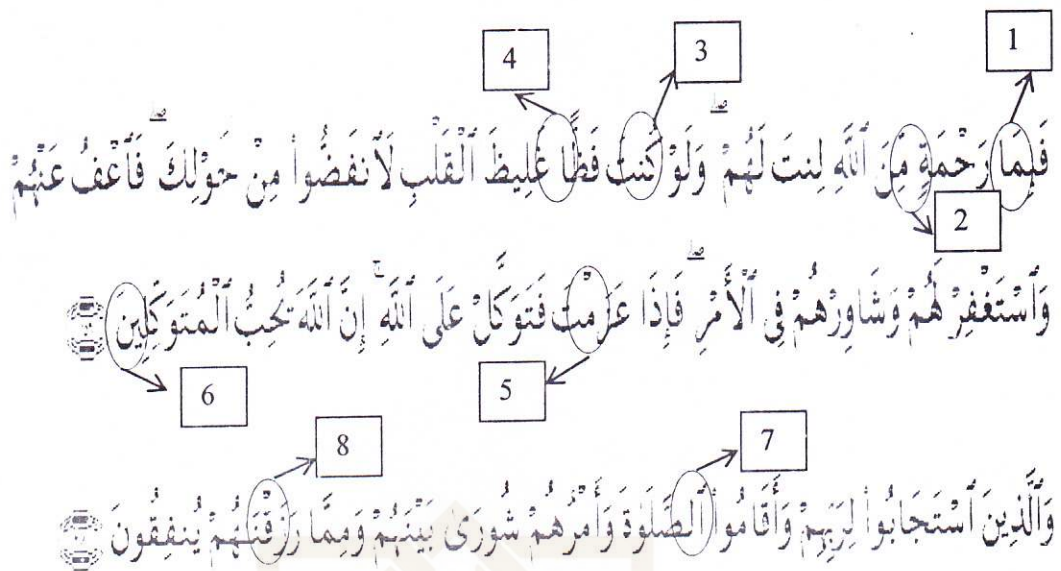 4 3 1
فَبِمَا رَحْمَةٍ مِّنَ ٱللَّهِ لِنتَ لَهُمْ ۖ وَلَوْ كُنتَ فَظًّا غَلِيظَ ٱلْقَلْبِ لَٱنفَضُّوا۟ مِنْ حَوْلِكَ ۖ فَٱعْفُ عَنْهُمْ
2
وَٱسْتَغْفِرْ لَهُمْ وَشَاوِرْهُمْ فِى ٱلْأَمْرِ ۖ فَإِذَا عَزَمْتَ فَتَوَكَّلْ عَلَى ٱللَّهِ ۚ إِنَّ ٱللَّهَ يُحِبُّ ٱلْمُتَوَكِّلِينَ
6 5
8 7
وَٱلَّذِينَ ٱسْتَجَابُوا۟ لِرَبِّهِمْ وَأَقَامُوا۟ ٱلصَّلَوٰةَ وَأَمْرُهُمْ شُورَىٰ بَيْنَهُمْ وَمِمَّا رَزَقْنَـٰهُمْ يُنفِقُونَ